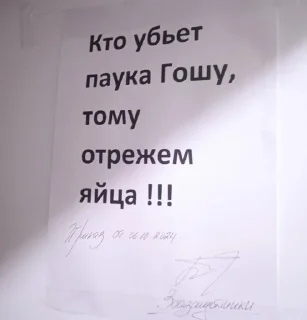 Кто убьет
паука Гошу,
тому
отрежем
яйца !!!
Приказ
Зоозащитники